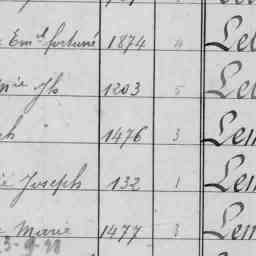 Em.d fortuné 1874 4 Lel
Jh 1203 5 Lel
ph 1476 3 Lem
é Joseph 132 1 Lem
Marie 1477 3 Lem
3-9-98